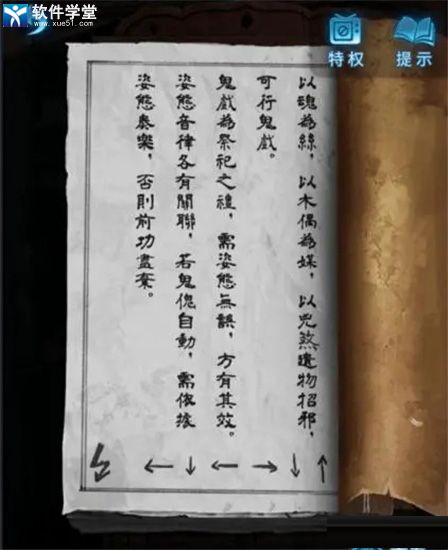 软件学堂
www.xue51.com
特权
提示
以魂為絲,以木偶為媒,以兇煞遺物招邪,
可行鬼戲。
鬼戲為祭祀之禮,需姿態無誤,方有其效。
姿態音律各有關聯,若鬼傀自動,需依據
姿態奏樂,否則前功盡棄。